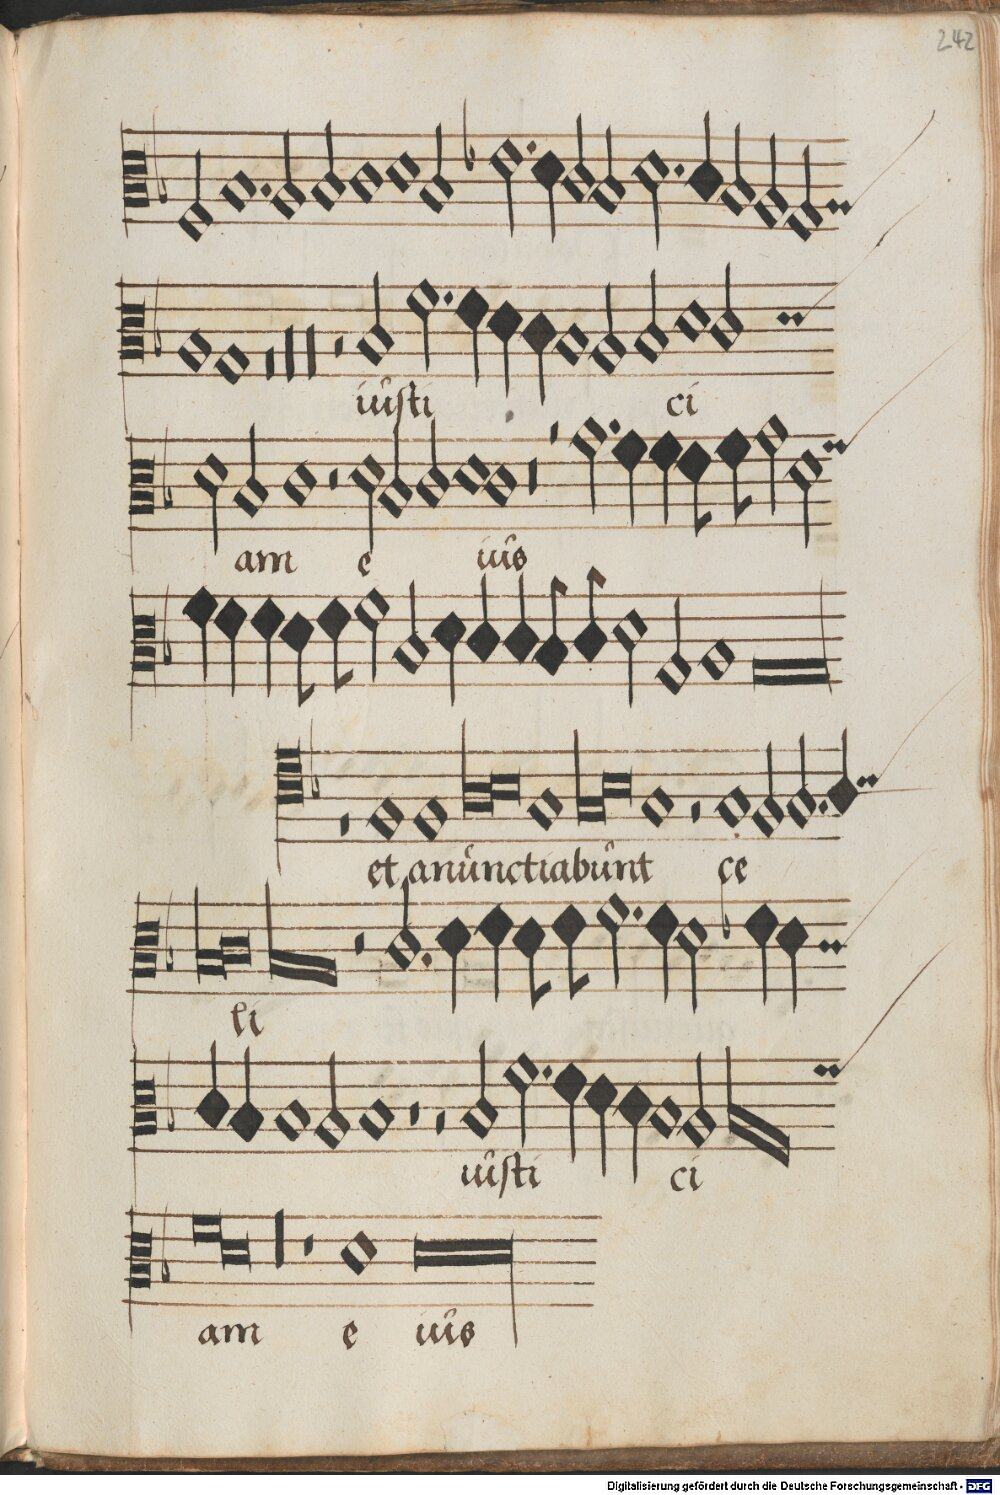 242
iusti ci
am e ius
et anunctiabunt ce
li
iusti ci
am e ius
Digitalisierung gefördert durch die Deutsche Forschungsgemeinschaft - DFG